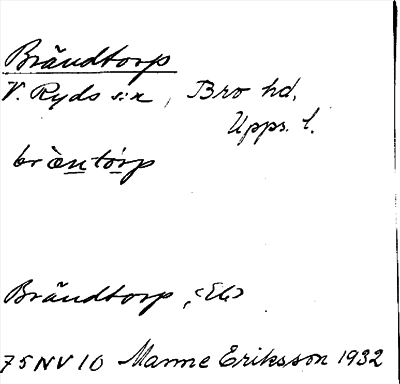 Brändtorp
V. Ryds s:n, Bro hd,
Upps. l.
brä̀ntórp
Brändtorp, <Ek>
75NV10 Manne Eriksson 1932